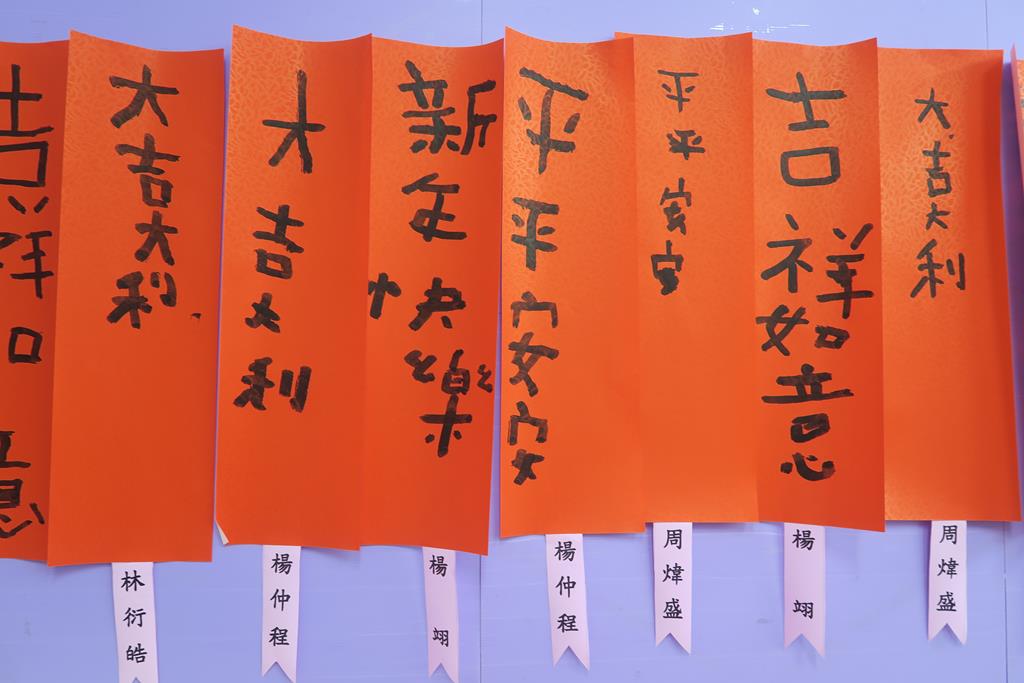 吉祥如意
大吉大利
林衍皓
大吉大利
楊仲程
新年快樂
楊翊
平平安安
楊仲程
平平安安
周煒盛
吉祥如意
楊翊
大吉大利
周煒盛